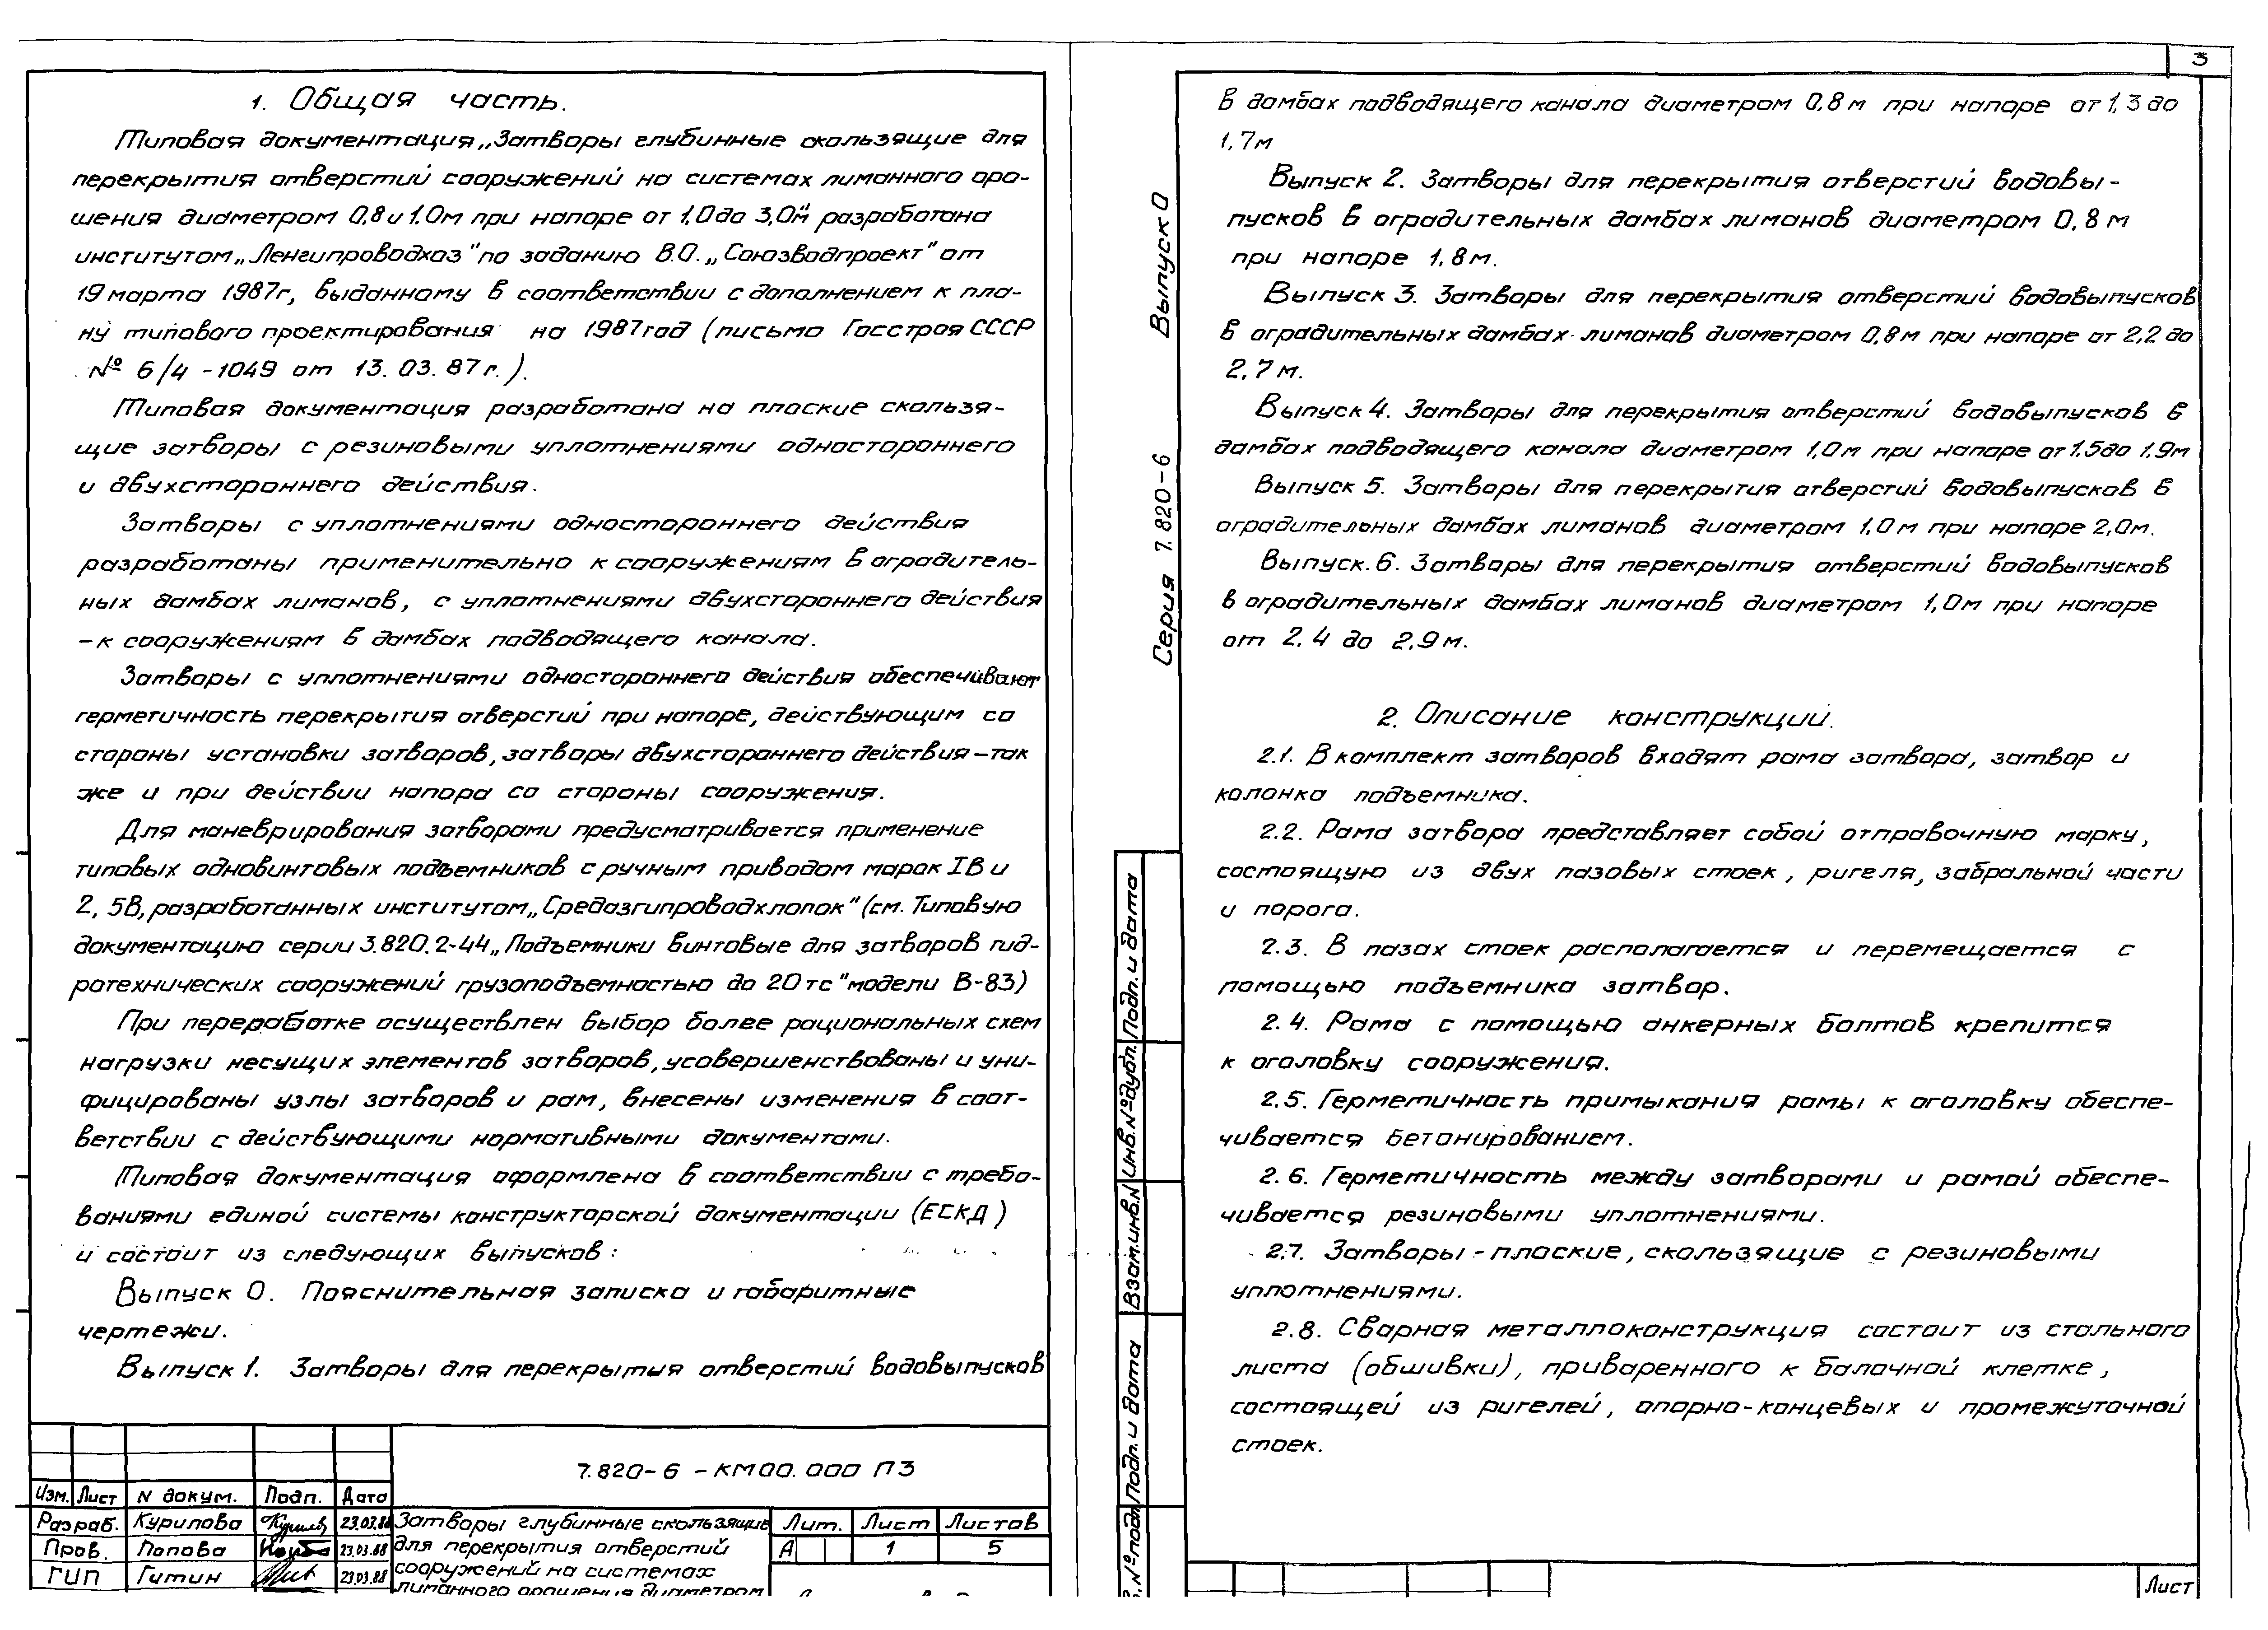 1. Общая часть.
Типовая документация „Затворы глубинные скользящие для
перекрытия отверстий сооружений на системах лиманного оро-
шения диаметром 0,8 и 1.0м при напоре от 1,0 до 3,0м" разработана
институтом „Ленгипроводхоз" по заданию В.О. „Союзводпроект" от
19 марта 1987г, выданному в соответствии с дополнением к пла-
ну типового проектирования на 1987 год (письмо Госстроя СССР
№ 6/4 -1049 от 13. 03. 87 г.).
Типовая документация разработана на плоские скользя-
щие затворы с резиновыми уплотнениями одностороннего
и двухстороннего действия.
Затворы с уплотнениями одностороннего действия
разработаны применительно к сооружениям в оградитель-
ных дамбах лиманов, с уплотнениями двухстороннего действия
-к сооружениям в дамбах подводящего канала.
Затворы с уплотнениями одностороннего действия обеспечивают
герметичность перекрытия отверстий при напоре, действующим со
стороны установки затворов, затворы двухстороннего действия-так
же и при действии напора со стороны сооружения.
Для маневрирования затворами предусматривается применение
типовых одновинтовых подъемников с ручным приводом марок IВ и
2, 5В, разработанных институтом „Средазгипроводхлопок" (см. Типовую
документацию серии 3.820.2-44 „Подъемники винтовые для затворов гид-
ротехнических сооружений грузоподъемностью до 20 тс" модели В-83)
При переработке осуществлен выбор более рациональных схем
нагрузки несущих элементов затворов, усовершенствованы и уни-
фицированы узлы затворов и рам, внесены изменения в соот-
ветствии с действующими нормативными документами.
Типовая документация оформлена в соответствии с требо-
ваниями единой системы конструкторской документации (ЕСКД)
и состоит из следующих выпусков:
Выпуск 0. Пояснительная записка и габаритные
чертежи.
Выпуск 1. Затворы для перекрытия отверстий водовыпусков
7.820-6 -КМ00.000 ПЗ
Изм. Лист N докум. Подп. Дата
Разраб. Курилова 23.03.88
Пров. Попова 23.03.88
ГИП Гитин 23.03.88
Затворы глубинные скользящие
для перекрытия отверстий
сооружений на системах
лиманного орошения диаметром
Лит. Лист Листов
А 1 5
3
Серия 7.820-6 Выпуск 0
в дамбах подводящего канала диаметром 0,8 м при напоре от 1,3 до
1,7м
Выпуск 2. Затворы для перекрытия отверстий водовы-
пусков в оградительных дамбах лиманов диаметром 0,8 м
при напоре 1,8м.
Выпуск 3. Затворы для перекрытия отверстий водовыпусков
в оградительных дамбах лиманов диаметром 0,8м при напоре от 2,2 до
2,7 м.
Выпуск 4. Затворы для перекрытия отверстий водовыпусков в
дамбах подводящего канала диаметром 1,0 м при напоре от 1.5 до 1,9м
Выпуск 5. Затворы для перекрытия отверстий водовыпусков в
оградительных дамбах лиманов диаметром 1,0 м при напоре 2,0м.
Выпуск.6. Затворы для перекрытия отверстий водовыпусков
в оградительных дамбах лиманов диаметром 1,0м при напоре
от 2.4 до 2.9 м.
2. Описание конструкции.
2.1. В комплект затворов входят рама затвора, затвор и
колонка подъемника.
2.2. Рама затвора представляет собой отправочную марку,
состоящую из двух пазовых стоек, ригеля, забральной части
и порога.
2.3. В пазах стоек располагается и перемещается с
помощью подъемника затвор.
2.4. Рама с помощью анкерных болтов крепится
к оголовку сооружения.
2.5. Герметичность примыкания рамы к оголовку обеспе-
чивается бетонированием.
2.6. Герметичность между затворами и рамой обеспе-
чивается резиновыми уплотнениями.
2.7. Затворы - плоские, скользящие с резиновыми
уплотнениями.
2.8. Сварная металлоконструкция состоит из стального
листа (обшивки), приваренного к балочной клетке,
состоящей из ригелей, опорно-концевых и промежуточной
стоек.
Подп. и дата
Инв.№дубл.
Взам.инв.N
Подп. и дата
№подл
Лист